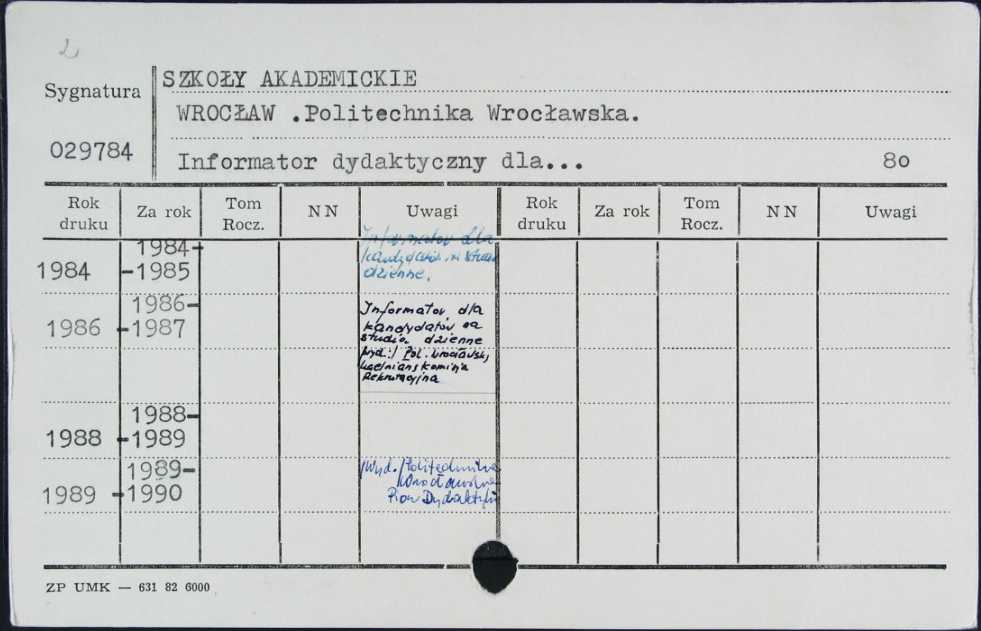 2
SZKOŁY AKADEMICKIE
Sygnatura
WROCŁAW .Politechnika Wrocławska.
029784
Informator dydaktyczny dla... 80
Rok druku Za rok Tom Rocz. NN Uwagi Rok druku Za rok Tom Rocz. NN Uwagi
1984 1984-1985 Informator dla
kandydatów na
dzienne.
1986 1986-1987 Informator dla
kandydatów na
studia dzienne
Wyd.: Pol. Wrocławska
Uczelniana Komisja
Rekrutacyjna
1988 1988-1989
1989 1989-1990 Wyd. Politechnika
Wrocławska
Pion Dydaktyki
ZP UMK — 631 82 6000